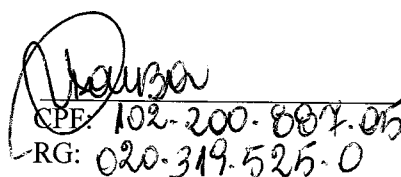 CPF: 102-200-887-05
RG: 020-319-525-0